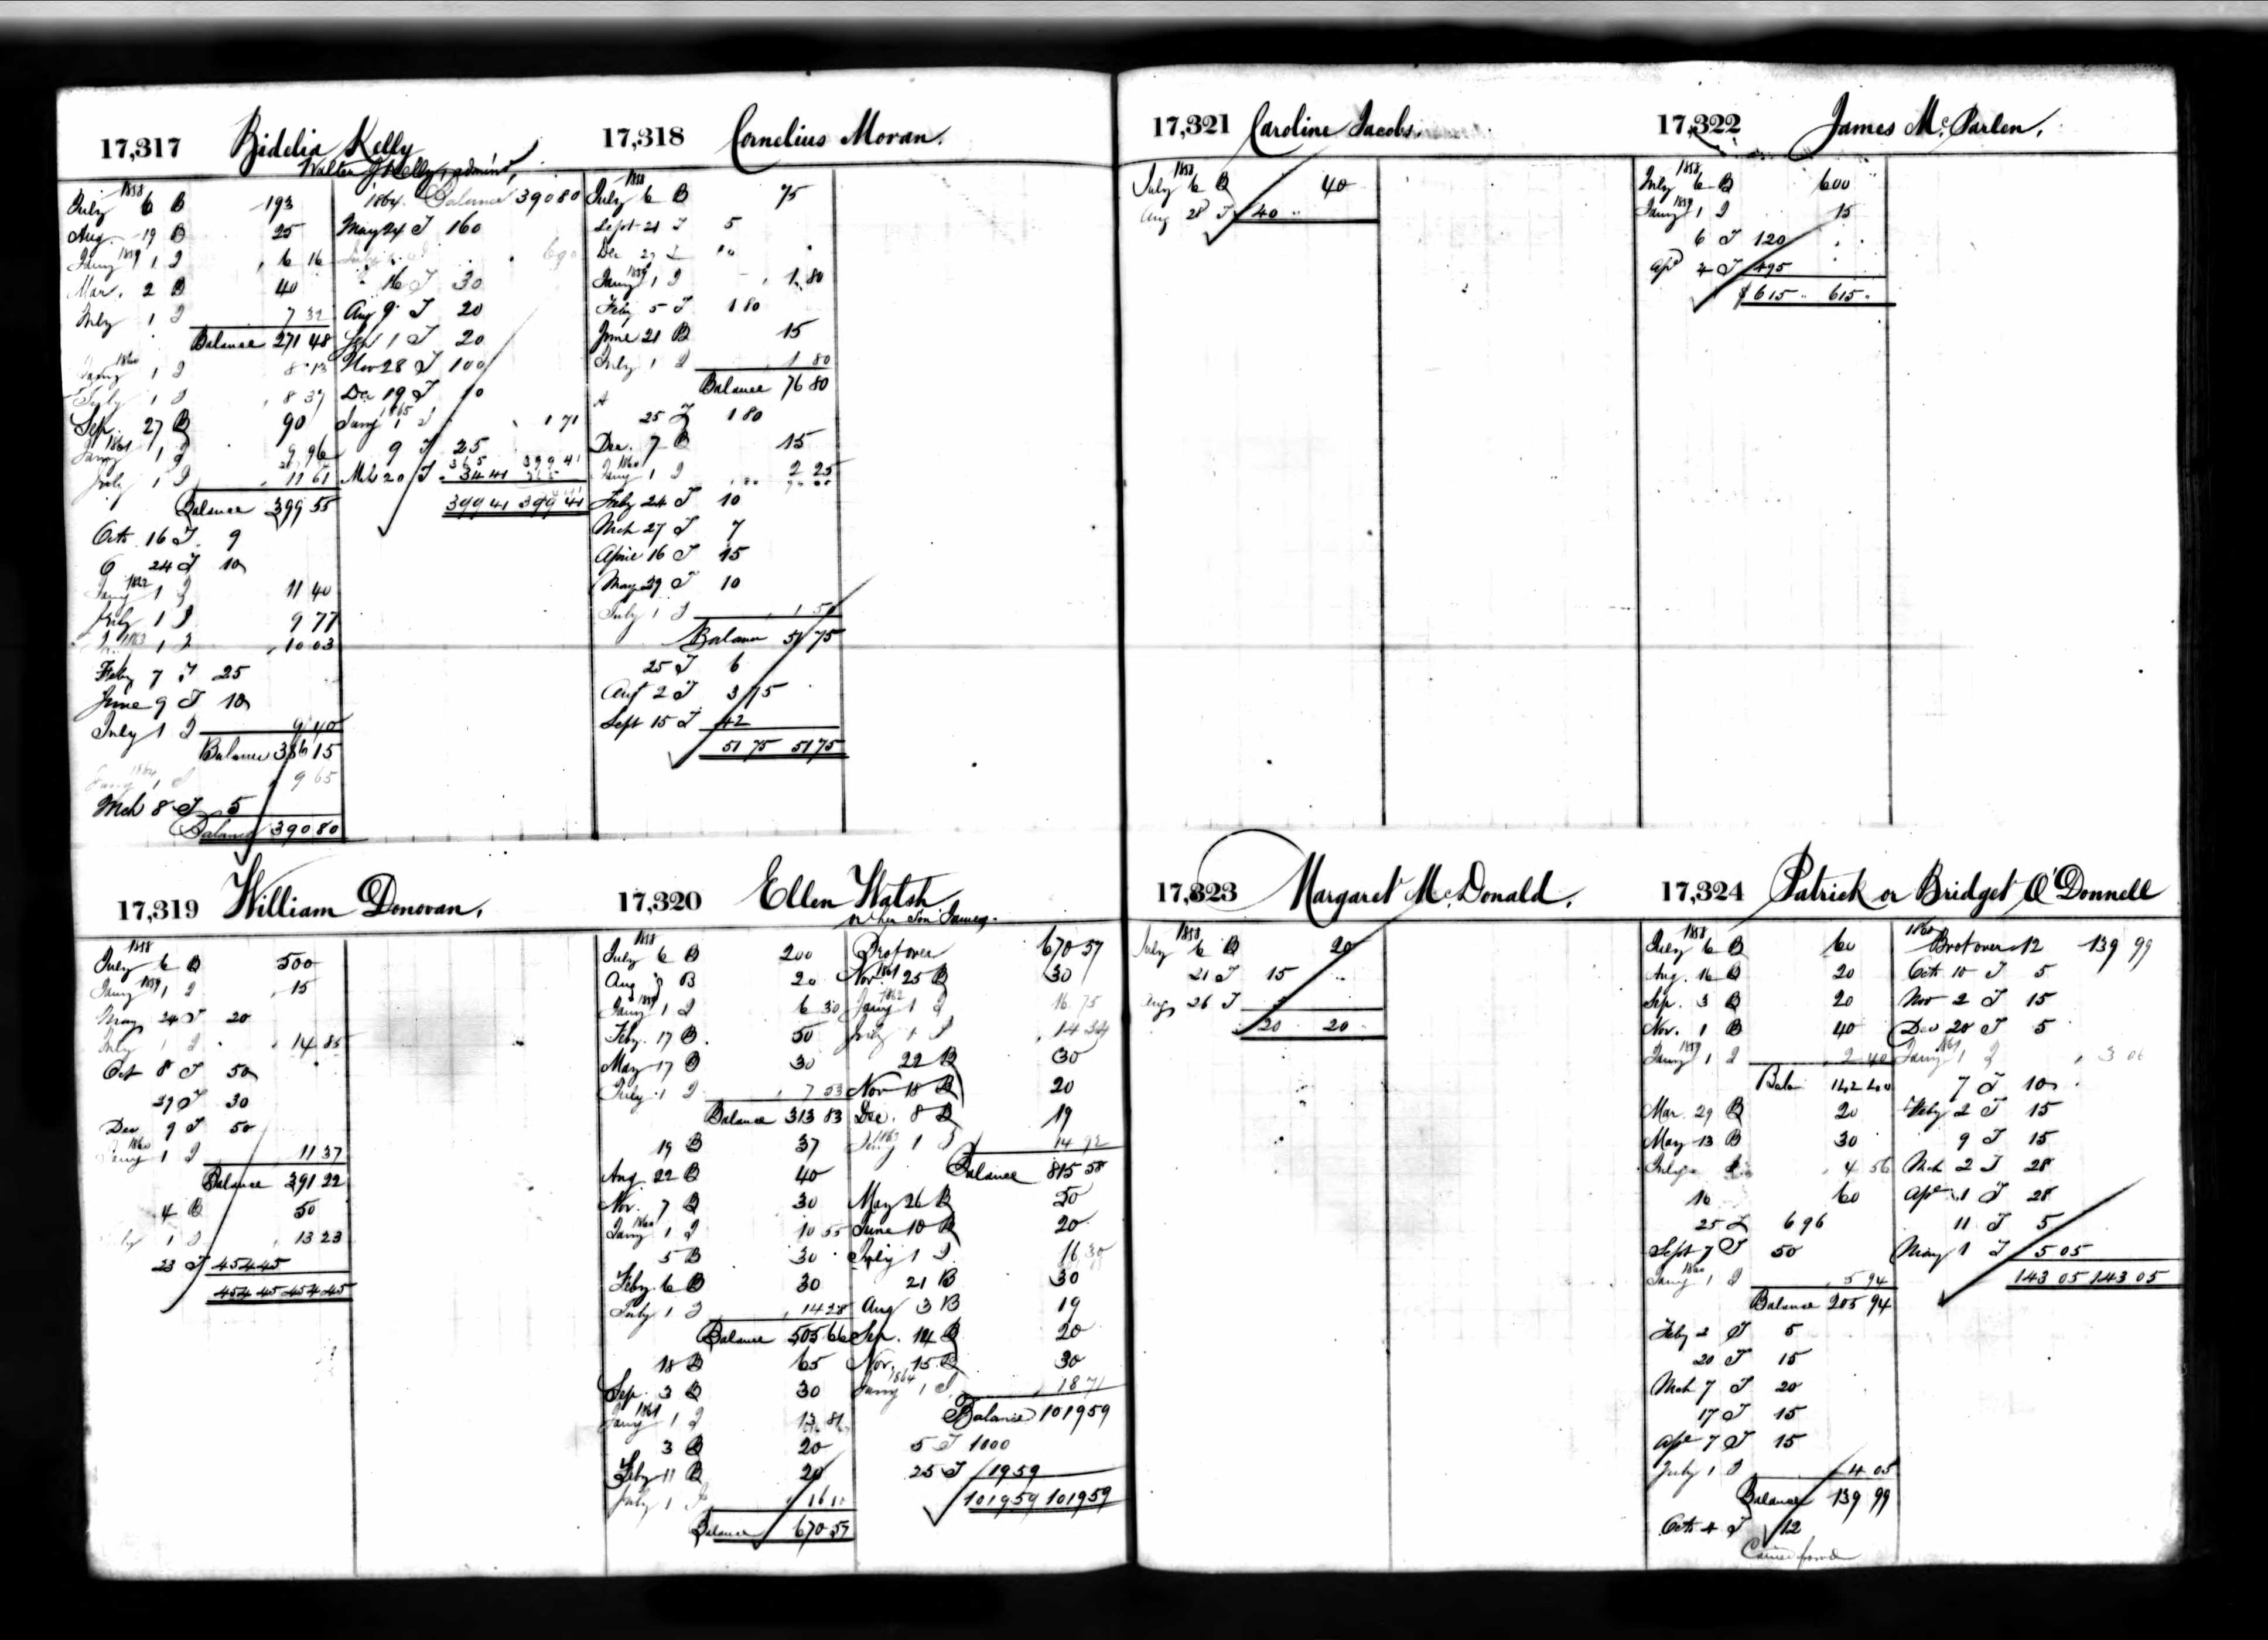 17,317 Bidelia Kelly
Walter J Kelly, admin^r,
1858
July 6 B 193
Aug. 19 B 25
Jany 1859 1 I 6 16
Mar. 2 B 40
July 1 I 7 32
Balance 271 48
Jany 1860 1 I 8 13
July 1 I 8 39
Sep. 27 B 90
Jany 1861 1 I 9 96
July 1 I 11 61
Balance 399 55
Octr. 16 T 9
24 T 10
Jany 1 I 11 40
July 1 I 9 77
1863 1 I 10 03
Feby 7 T 25
June 9 T 10
July 1 I 9 40
Balance 386 15
Jany 1864 1 I 9 65
Mch 8 T 5
Balance 390 80
1864 Balance 390 80
May 24 T 160
6 90
16 T 30
Aug 9 T 20
Sep 1 T 20
Nov 28 T 100
Dec 19 T 10
Jany 1865 1 I 1 71
9 T 25
365 399 41
Mch 20 T 34 41 365
399 41 399 41
17,318 Cornelius Moran.
1858
July 6 B 75
Sept 21 T 5
Jany 1859 1 I 1 80
Feby 5 T 1 80
June 21 B 15
July 1 I 1 80
Balance 76 80
25 T 1 80
Dec. 7 B 15
Jany 1860 1 I 2 25
Feby 24 T 10
Mch 27 T 7
April 16 T 15
May 29 T 10
July 1 I 1 50
Balance 51 75
25 T 6
Augt 2 T 3 75
Sept 15 T 42
51 75 51 75
17,319 William Donovan.
1858
July 6 B 500
Jany 1859 1 I 15
May 24 T 20
July 1 I 14 85
Oct 8 T 50
29 T 30
Dec 9 T 50
Jany 1860 1 I 11 37
Balance 391 22
4 B 50
July 1 I 13 23
23 T 454 45
454 45 454 45
17,320 Ellen Walsh
or her Son James.
1858
July 6 B 200
Aug 9 B 20
Jany 1859 1 I 6 30
Feby. 17 B. 50
May 17 B 30
July 1 I 7 53
Balance 313 83
19 B 37
Aug. 22 B 40
Nov. 7 B 30
Jany 1860 1 I 10 55
5 B 30
Feby. 6 B 30
July 1 I 14 28
Balance 505 66
18 B 65
Sep. 3 B 30
Jany 1861 1 I 13 81
3 B 20
Feby 11 B 20
July 1 I 16 10
Balance 670 57
Brot over 670 57
Nov. 1861 25 B 30
Jany 1862 1 I 16 75
July 1 I 14 34
22 B 30
Nov 18 B 20
Dec. 8 B 19
Jany 1863 1 I 14 92
Balance 815 58
May 26 B 50
June 10 B 20
July 1 I 16 30
21 B 30
Aug 3 B 19
Sep. 14 B 20
Nov. 15 B 30
Jany 1864 1 I 18 71
Balance 1019 59
5 T 1000
25 T 19 59
1019 59 1019 59
17,321 Caroline Jacobs.
1858
July 6 B 40
Aug 28 T 40 ..
17,322 James McParlen.
1858
July 6 B 600
Jany 1859 1 I 15
6 T 120
Apl 4 T 495
$615 .. 615 ..
17,323 Margaret McDonald.
1858
July 6 B 20
21 T 15 ..
Aug 26 T 5
20 .. 20 ..
17,324 Patrick or Bridget O'Donnell
1858
July 6 B 60
Aug. 16 B 20
Sep. 3 B 20
Nov. 1 B 40
Jany 1859 1 I 2 40
Bala 142 40
Mar. 29 B 20
May 13 B 30
July 4 56
16 60
25 T 6 96
Sept 7 T 50
Jany 1860 1 I 5 94
Balance 205 94
Feby 2 T 5
20 T 15
Mch 7 T 20
17 T 15
Apl 7 T 15
July 1 I 4 05
Balance 139 99
Octr 4 T 12
Carried forwd
1860
Brot over 12 139 99
Octr 10 T 5
Nov 2 T 15
Dec 20 T 5
Jany 1861 1 I 3 06
7 T 10
Feby 2 T 15
9 T 15
Mch 2 T 28
Apl 1 T 28
11 T 5
May 1 T 5 05
143 05 143 05